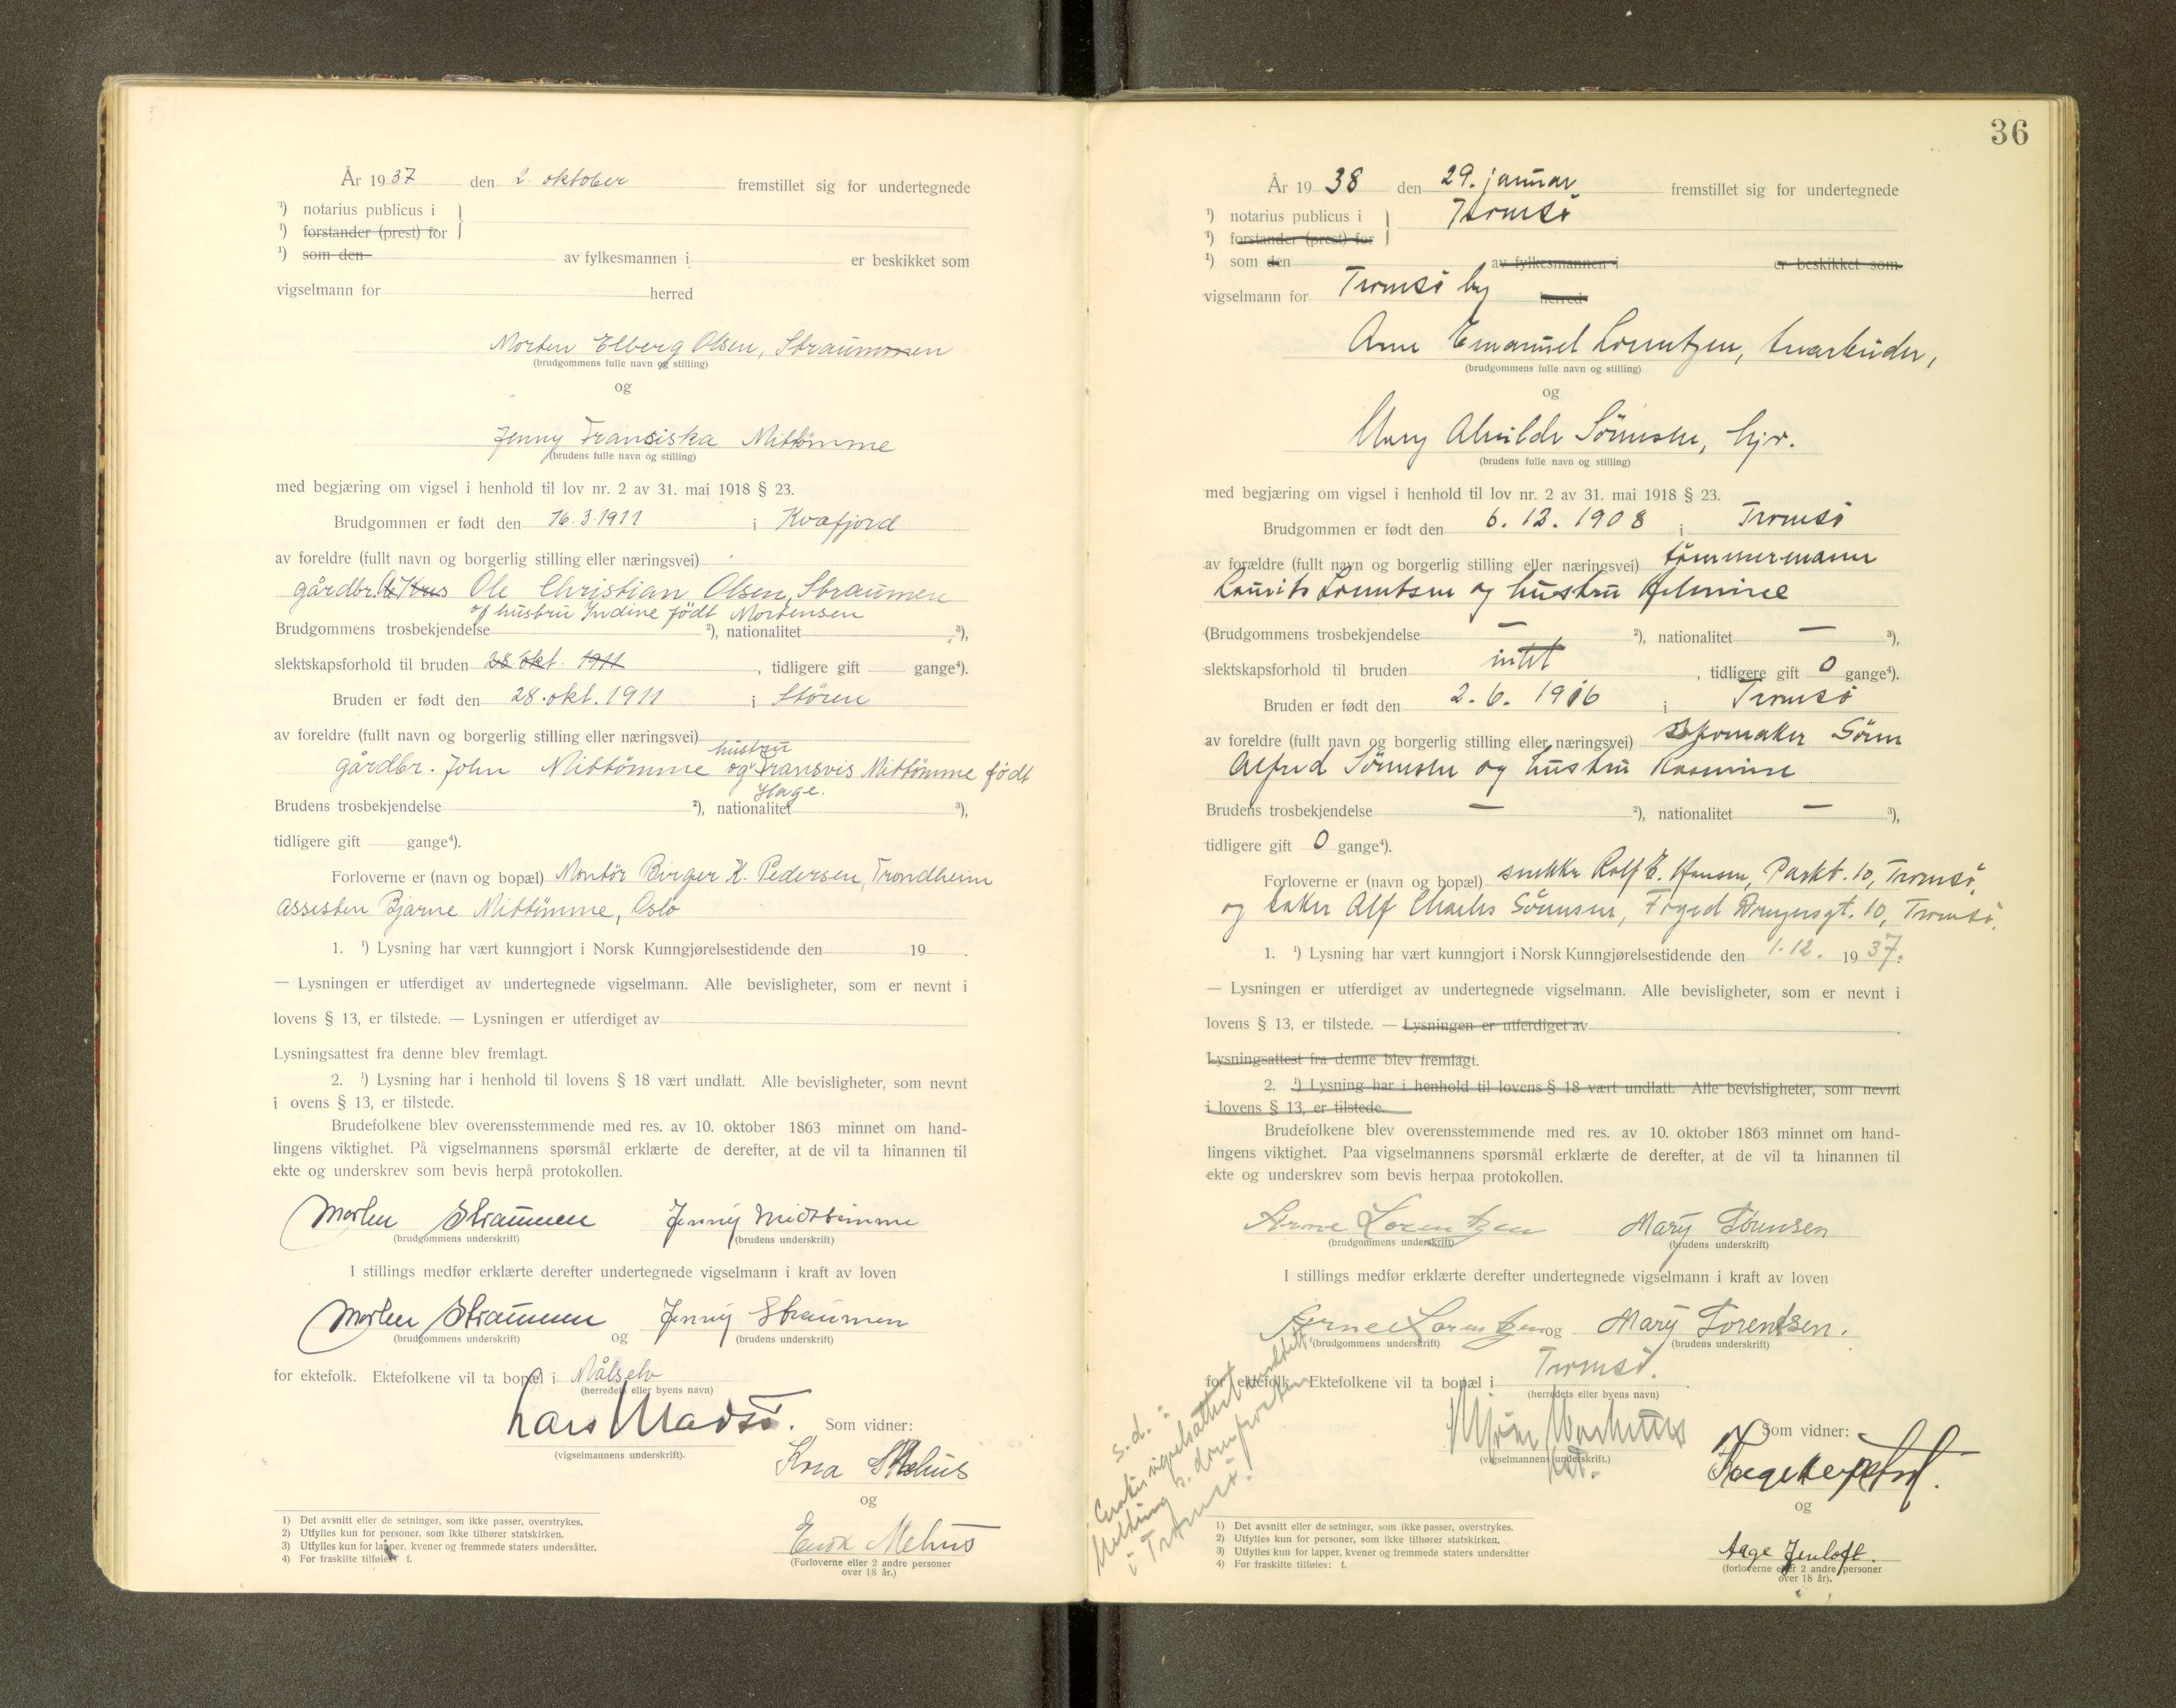 År 1937 den 2. oktober fremstillet sig for undertegnede
¹) notarius publicus i
¹) forstander (prest) for
¹) som den av fylkesmannen i er beskikket som
vigselmann for herred
Morten Elberg Olsen, Straumen
(brudgommens fulle navn og stilling)
og
Jenny Fransiska Mittömme
(brudens fulle navn og stilling)
med begjæring om vigsel i henhold til lov nr. 2 av 31. mai 1918 § 23.
Brudgommen er født den 16.3.1911 i Kvæfjord
av foreldre (fullt navn og borgerlig stilling eller næringsvei)
gårdbr. Ole Christian Olsen, Straumen
og hustru Indine født Mortensen
Brudgommens trosbekjendelse ²), nationalitet ³),
slektskapsforhold til bruden 28. okt. 1911, tidligere gift gange⁴).
Bruden er født den 28. okt. 1911 i Stören
av foreldre (fullt navn og borgerlig stilling eller næringsvei)
hustru
gårdbr. John Mittömme og Fransis Mittömme født
Hage.
Brudens trosbekjendelse ²), nationalitet ³),
tidligere gift gange⁴).
Forloverne er (navn og bopæl) Montör Birger K. Pedersen, Trondheim
assisten Bjarne Mittömme, Oslo
1. ¹) Lysning har vært kunngjort i Norsk Kunngjørelsestidende den 19 .
— Lysningen er utferdiget av undertegnede vigselmann. Alle bevisligheter, som er nevnt i
lovens § 13, er tilstede. — Lysningen er utferdiget av
Lysningsattest fra denne blev fremlagt.
2. ¹) Lysning har i henhold til lovens § 18 vært undlatt. Alle bevisligheter, som nevnt
i ovens § 13, er tilstede.
Brudefolkene blev overensstemmende med res. av 10. oktober 1863 minnet om hand-
lingens viktighet. På vigselmannens spørsmål erklærte de derefter, at de vil ta hinannen til
ekte og underskrev som bevis herpå protokollen.
Morten Straumen Jenny Midttömme
(brudgommens underskrift) (brudens underskrift)
I stillings medfør erklærte derefter undertegnede vigselmann i kraft av loven
Morten Straumen og Jenny Straumen
(brudgommens underskrift) (brudens underskrift)
for ektefolk. Ektefolkene vil ta bopæl i Målselv
(herredets eller byens navn)
Lars Madsö. Som vidner:
(vigselmannens underskrift).
Mehus
og
Mehus
(Forloverne eller 2 andre personer
over 18 år.)
1) Det avsnitt eller de setninger, som ikke passer, overstrykes.
2) Utfylles kun for personer, som ikke tilhører statskirken.
3) Utfylles kun for lapper, kvener og fremmede staters undersåtter.
4) For fraskilte tilføies: f.
36
År 1938 den 29. januar fremstillet sig for undertegnede
¹) notarius publicus i Tromsö
¹) forstander (prest) for
¹) som den av fylkesmannen i er beskikket som
vigselmann for Tromsö by herred
Arne Emanuel Lorentzen, tmarbeider,
(brudgommens fulle navn og stilling)
og
Mary Alvilde Sörensen, hjv.
(brudens fulle navn og stilling)
med begjæring om vigsel i henhold til lov nr. 2 av 31. mai 1918 § 23.
Brudgommen er født den 6. 12. 1908 i Tromsö
av forældre (fullt navn og borgerlig stilling eller næringsvei) tömmermann
Laurits Lorentsen og hustru Helmine
(Brudgommens trosbekjendelse — ²), nationalitet — ³),
slektskapsforhold til bruden intet, tidligere gift 0 gange⁴).
Bruden er født den 2. 6. 1916 i Tromsö
av foreldre (fullt navn og borgerlig stilling eller næringsvei) skomaker Sören
Alfred Sörensen og hustru Rasmine
Brudens trosbekjendelse — ²), nationalitet — ³),
tidligere gift 0 gange⁴).
Forloverne er (navn og bopæl) snekker Rolf E. Hansen, Parkt. 10, Tromsö,
og baker Alf Charles Sörensen, Foged Dreyersgt. 10, Tromsö.
1. ¹) Lysning har vært kunngjort i Norsk Kunngjørelsestidende den 1.12. 1937.
— Lysningen er utferdiget av undertegnede vigselmann. Alle bevisligheter, som er nevnt i
lovens § 13, er tilstede. — Lysningen er utferdiget av
Lysningsattest fra denne blev fremlagt.
2. ¹) Lysning har i henhold til lovens § 18 vært undlatt. Alle bevisligheter, som nevnt
i lovens § 13, er tilstede.
Brudefolkene blev overensstemmende med res. av 10. oktober 1863 minnet om hand-
lingens viktighet. Paa vigselmannens spørsmål erklærte de derefter, at de vil ta hinannen til
ekte og underskrev som bevis herpaa protokollen.
Arne Lorentzen Mary Sørensen
(brudgommens underskrift) (brudens underskrift)
I stillings medfør erklærte derefter undertegnede vigselmann i kraft av loven
Arne Lorentzen og Mary Lorentsen.
(brudgommens underskrift) (brudens underskrift)
for ektefolk. Ektefolkene vil ta bopæl i Tromsö.
(herredets eller byens navn)
Som vidner:
(vigselmannens underskrift.)
og
Aage Jenloft.
(forloverne eller 2 andre personer
over 18 år).
s.d.:
Gratis vigselsattest utstedt.
Melding s. domprosten
i Tromsö.
1) Det avsnitt eller de setninger, som ikke passer, overstrykes.
2) Utfylles kun for personer, som ikke tilhører statskirken.
3) Utfylles kun for lapper, kvener og fremmede staters undersåtter
4) For fraskilte tilføies: f.